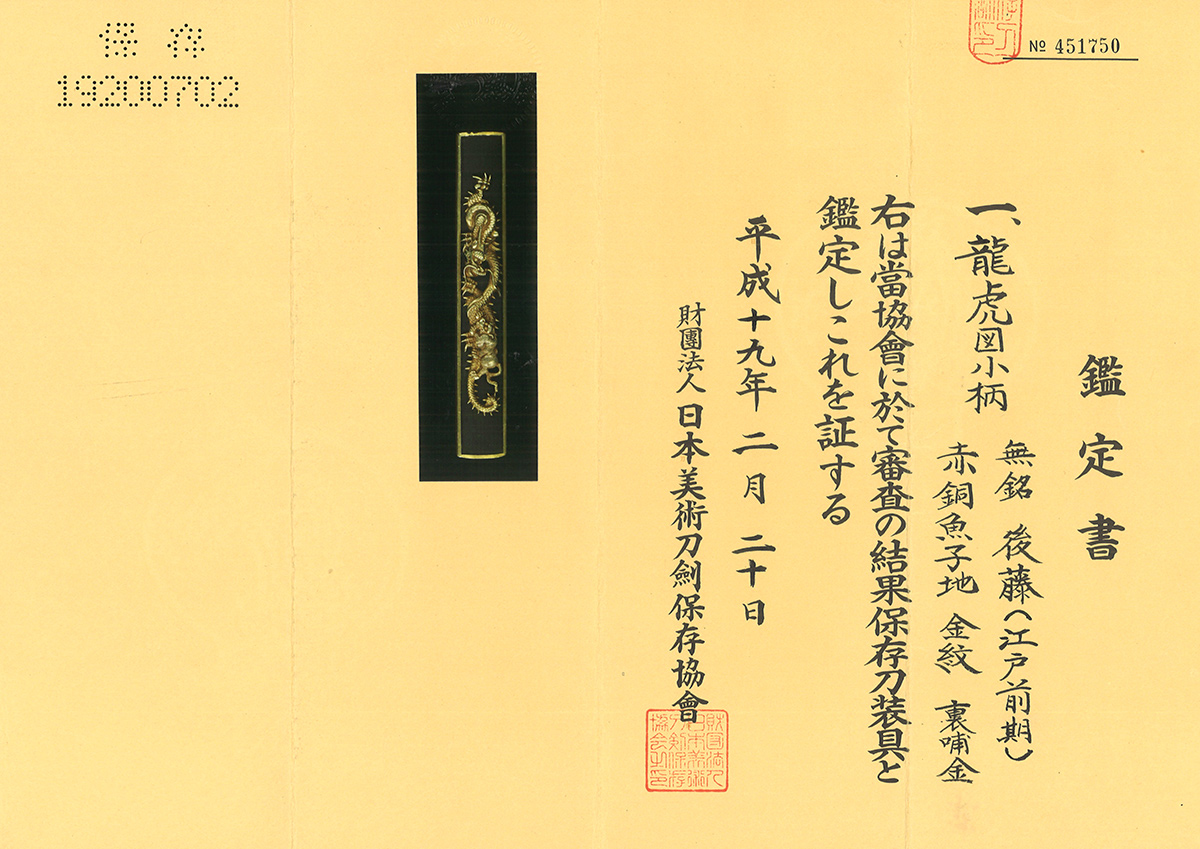 鑑定書
一、龍虎図小柄
無銘 後藤(江戸前期)
赤銅魚子地 金紋 裏哺金
右は當協會に於て審査の結果保存刀装具と
鑑定しこれを証する
平成十九年 二月 二十日
財團法人 日本美術刀劍保存協會
№ 451750
保存
19200702